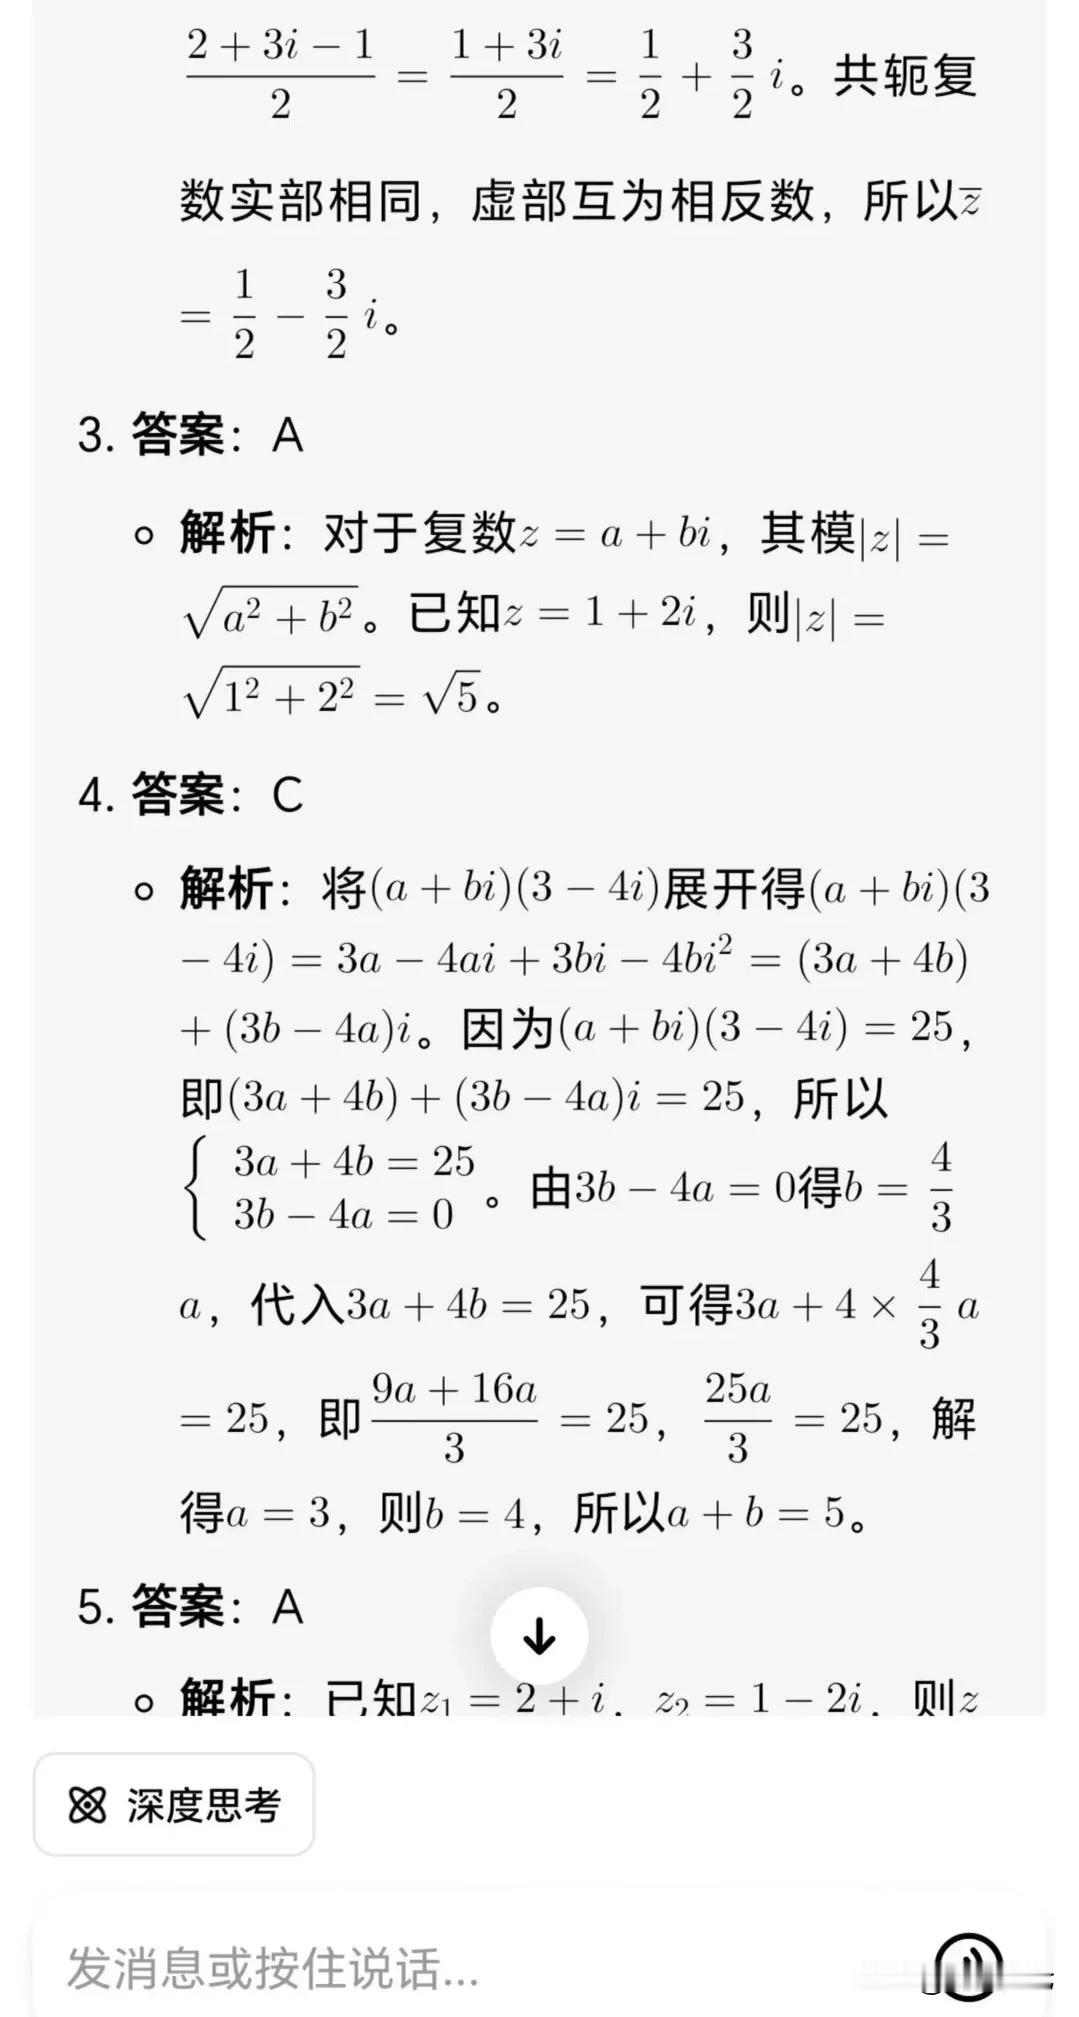 (2 + 3i − 1)/2 = (1 + 3i)/2 = 1/2 + 3/2 i。共轭复
数实部相同，虚部互为相反数，所以z̅
= 1/2 − 3/2 i。
3. 答案：A
解析：对于复数z = a + bi，其模|z| =
√(a² + b²)。已知z = 1 + 2i，则|z| =
√(1² + 2²) = √5。
4. 答案：C
解析：将(a + bi)(3 − 4i)展开得(a + bi)(3
− 4i) = 3a − 4ai + 3bi − 4bi² = (3a + 4b)
+ (3b − 4a)i。因为(a + bi)(3 − 4i) = 25，
即(3a + 4b) + (3b − 4a)i = 25，所以
{ 3a + 4b = 25
3b − 4a = 0 。由3b − 4a = 0得b = 4/3
a，代入3a + 4b = 25，可得3a + 4 × 4/3 a
= 25，即(9a + 16a)/3 = 25，25a/3 = 25，解
得a = 3，则b = 4，所以a + b = 5。
5. 答案：A
解析：已知z₁ = 2 + i，z₂ = 1 − 2i，则z
深度思考
发消息或按住说话...